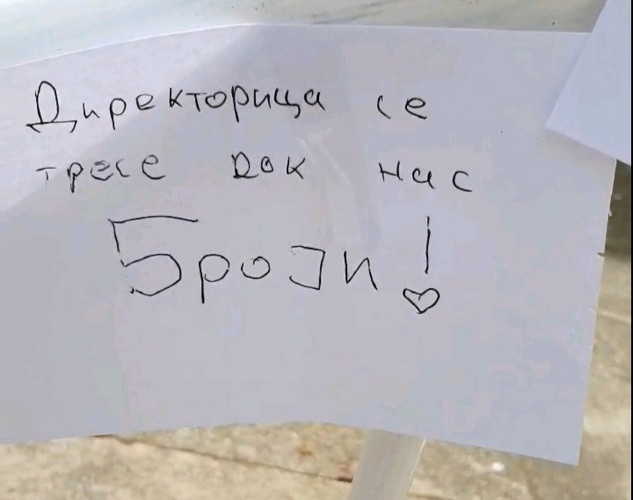 Директорица се
тресе док нас
Броји!